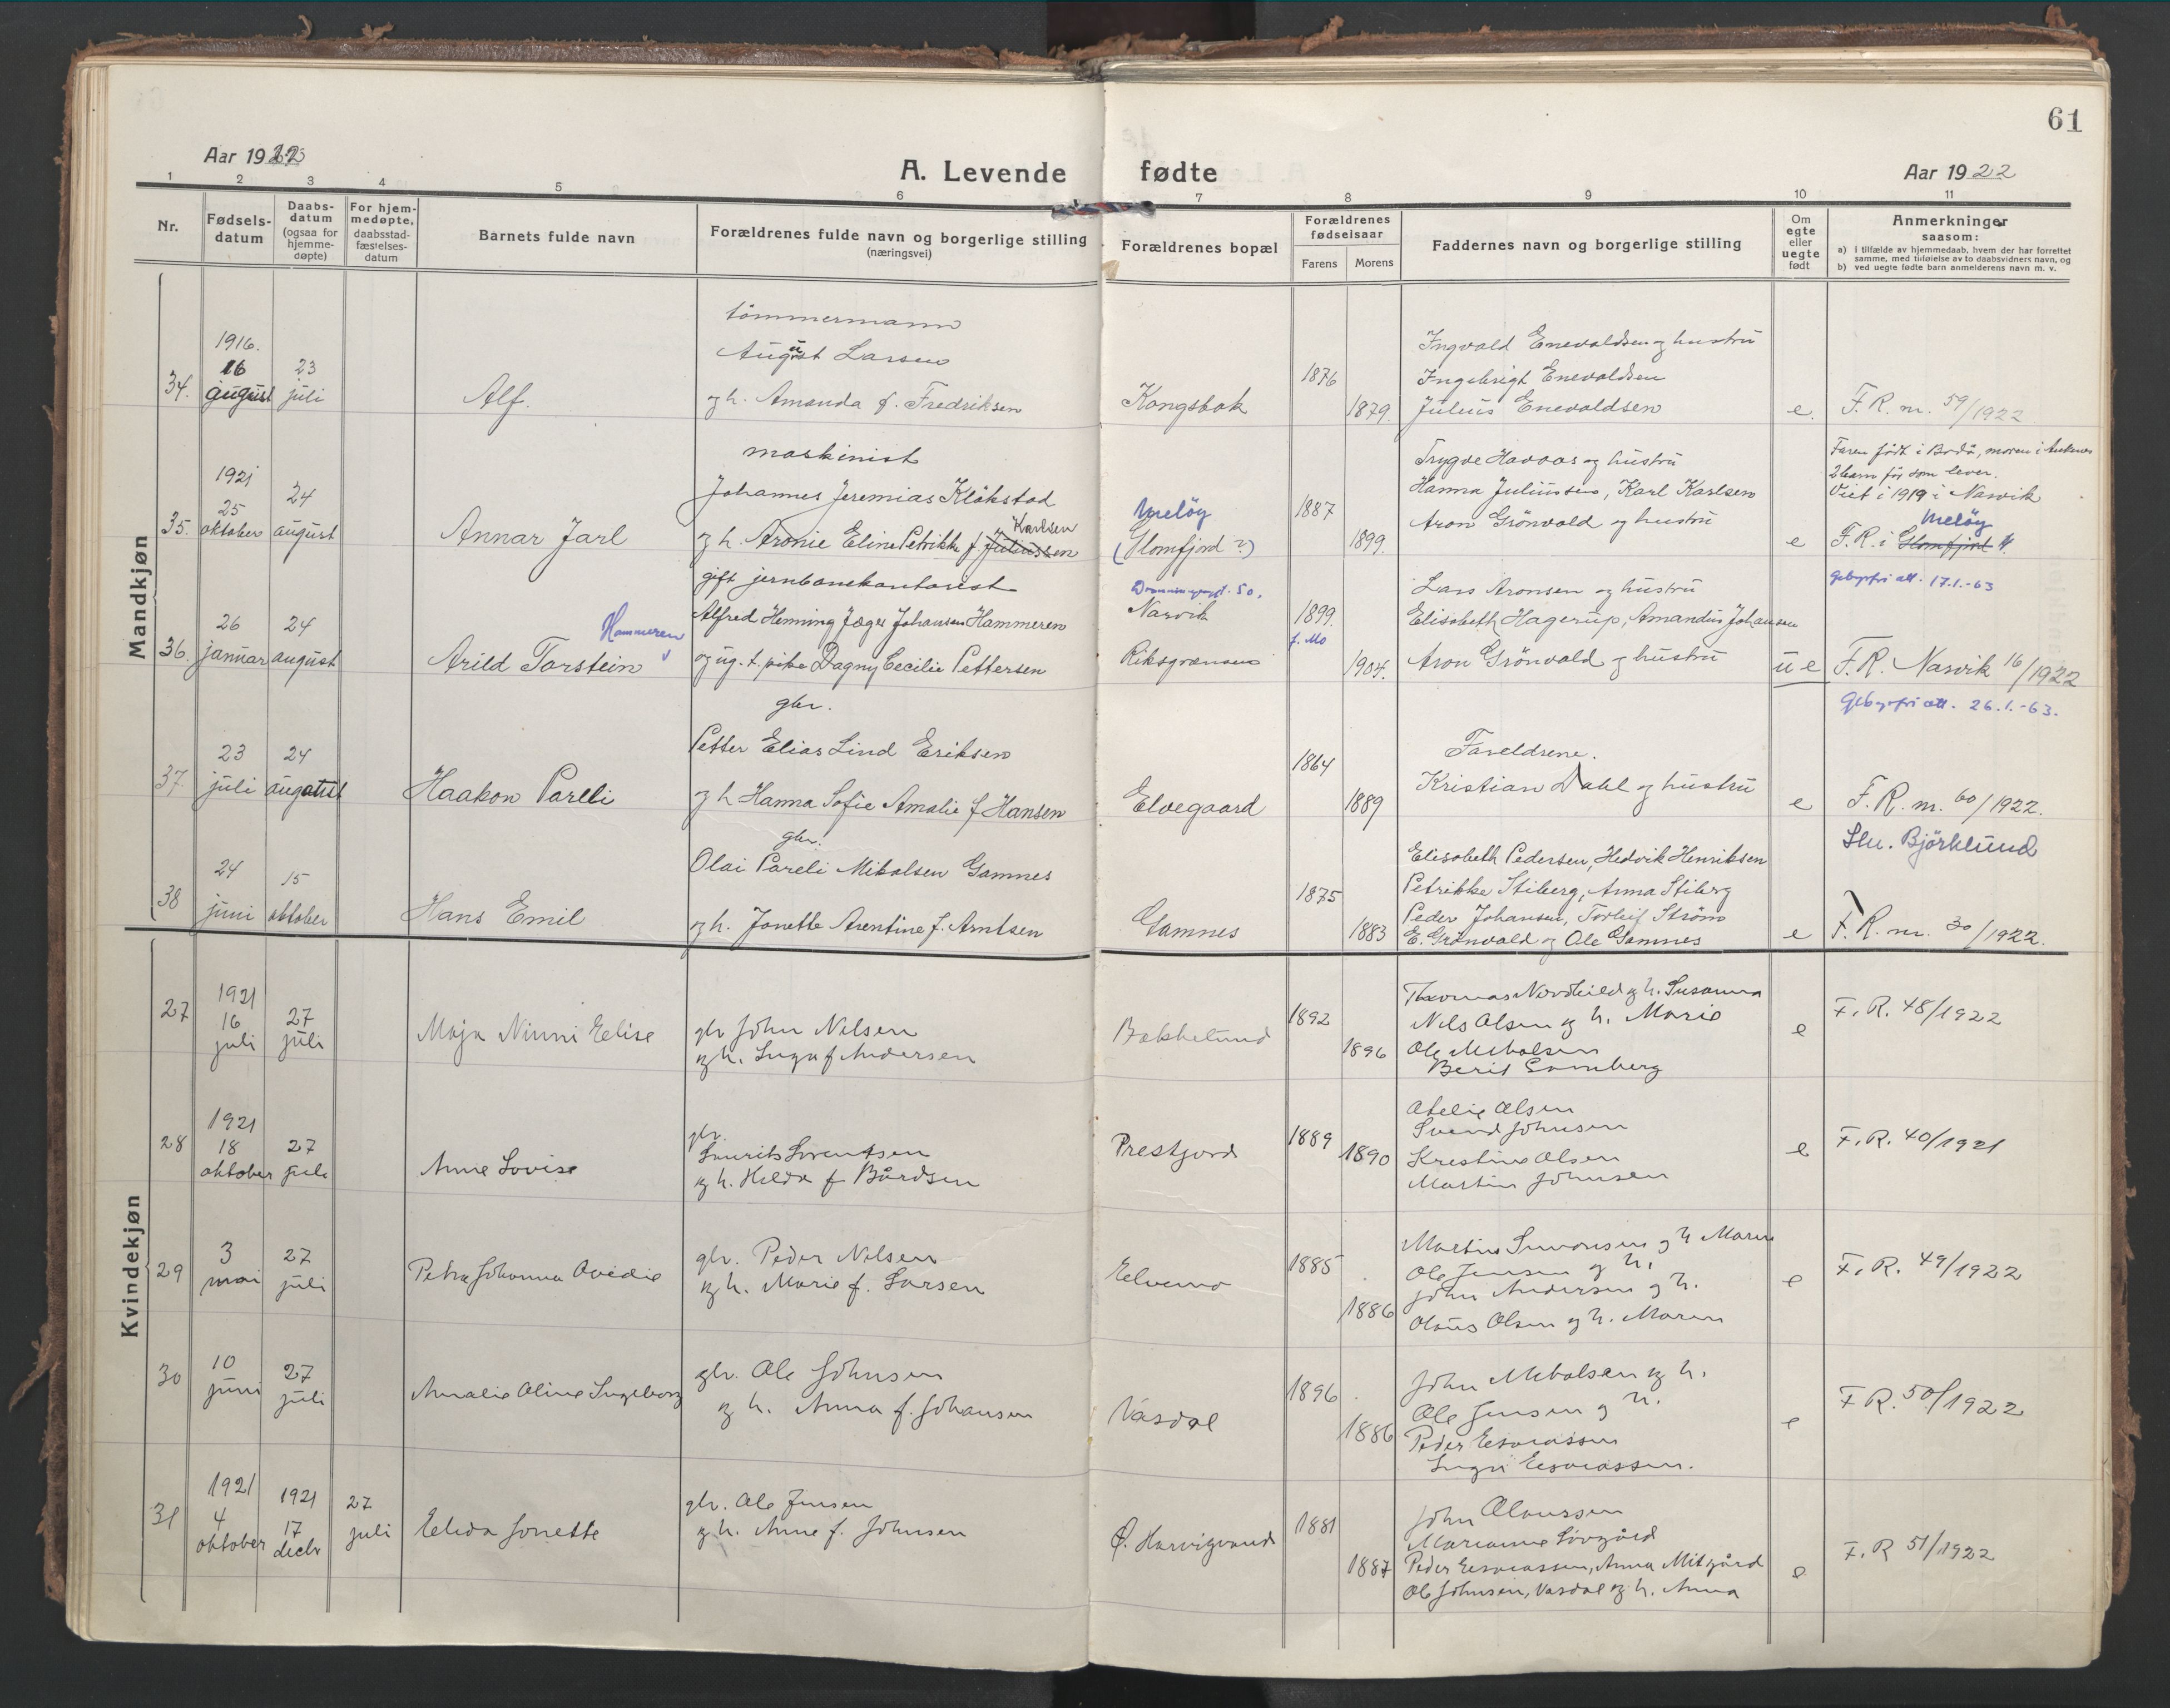 61
Aar 1922
A. Levende fødte
Aar 1922
1 2 3 4 5 6 7 8 9 10 11
Nr.
Fødsels-
datum
Daabs-
datum
(ogsaa for
hjemme-
døpte)
For hjem-
medøpte,
daabsstad-
fæstelses-
datum
Barnets fulde navn
Forældrenes fulde navn og borgerlige stilling
(næringsvei)
Forældrenes bopæl
Forældrenes
fødselsaar
Farens Morens
Faddernes navn og borgerlige stilling
Om
egte
eller
uegte
født
Anmerkninger
saasom:
a) i tilfælde av hjemmedaab, hvem der har forrettet
samme, med tilføielse av to daabsvidners navn, og
b) ved uegte fødte barn anmelderens navn m. v.
Mandkjøn
34.
1916.
16
august
23
juli
Alf.
tömmermann
August Larsen
og h. Amanda f. Fredriksen
Kongsbak
1876
1879.
Ingvald Enevaldsen og hustru
Ingebrigt Enevaldsen
Julius Enevaldsen
e.
F. R. nr. 59/1922
35.
1921
25
oktober
24
august
Annar Jarl
maskinist
Johannes Jeremias Klåkstad
Karlsen
og h. Aronie Eline Petrikke f. Juliussen
Meløy
(Glomfjord?)
1887
1899.
Trygve Havaas og hustru
Hanna Juliussen, Karl Karlsen
Aron Grönvald og hustru
e
Faren födt i Bodö, moren i Ankenes
2 barn för som lever.
Viet i 1919 i Narvik
Meløy
F. R. i Glomfjord
Gebyrfri att. 17.1.-63
36.
26
januar
24
august
Hammeren
Arild Torstein
gift jernbanekontorist
Alfred Henning Jæger Johansen Hammeren
og ug. t. pike Dagny Cecilie Pettersen
Narvik
Riksgrænsen
1899.
f. Mo
1904.
Lars Aronsen og hustru
Elisabeth Hagerup, Amandus Johansen
Aron Grönvald og hustru
u e
F. R. Narvik 16/1922
Gebyrfri att. 26.1.-63.
37.
23
juli
24
august
Haakon Parelli
gbr.
Petter Elias Lind Eriksen
og h Hanna Sofie Amalie f Hansen
Elvegaard
1864
1889
Foreldrene.
Kristian Dahl og hustru
e
F. R. nr. 60/1922.
38
24
juni
15
oktober
Hans Emil
gbr.
Olai Pareli Mikalsen Gamnes
og h. Jonette Arentine f. Arntsen
Gamnes
1875
1883
Elisabeth Pedersen, Hedvik Henriksen
Petrikke Stiberg, Anna Stiberg
Peder Johansen, Torleif Ström
E. Grönvald og Ole Gamnes
e
Björklund
F. R. nr. 30/1922.
Kvindekjøn
27
1921
16
juli
27
juli
Maja Ninni Elise
gbr John Nilsen
og h. Inga f Andersen
Bakkelund
1892
1896
Thomas Nordheild og h. Susanna
Nils Olsen og h. Marie
Ole Mikalsen
Berit
e
F. R. 48/1922
28
1921
18
oktober
27
juli
Anne Lovise
gbr.
Laurits Lorentsen
og h. Hilda f Bårdsen
Prestjord
1889
1890
Olsen
Svend Johnsen
Krestine Olsen
Martin Johnsen
e
F. R. 40/1921
29
3
mai
27
juli
Petra Johanna Ovedie
gbr. Peder Nilsen
og h. Marie f. Larsen
Elvemo
1885
1886
Martin Simonsen og h Maren
Ole Jensen og h.
John Andersen og h.
Olaus Olsen og h. Maren
e
F. R. 49/1922
30
10
juni
27
juli
Amalie Oline Ingeborg
gbr. Ole Johnsen
og h. Anna f. Johansen
Vasdal
1896
1886
John Mikalsen og h.
Ole Jensen og h.
Peder Esaiassen
Inga Esaiassen.
e
F R. 50/1922
31
1921
4
oktober
1921
17
decbr
27
juli
Elida Jonette
gbr. Ole Jensen
og h. Anne f. Johnsen
Ø. Harvigvand
1881
1887
John Olaussen
Marianne Lövgård
Peder Esaiassen, Anna Mitgård
Ole Johnsen, Vasdal og h. Anna
e
F. R 51/1922